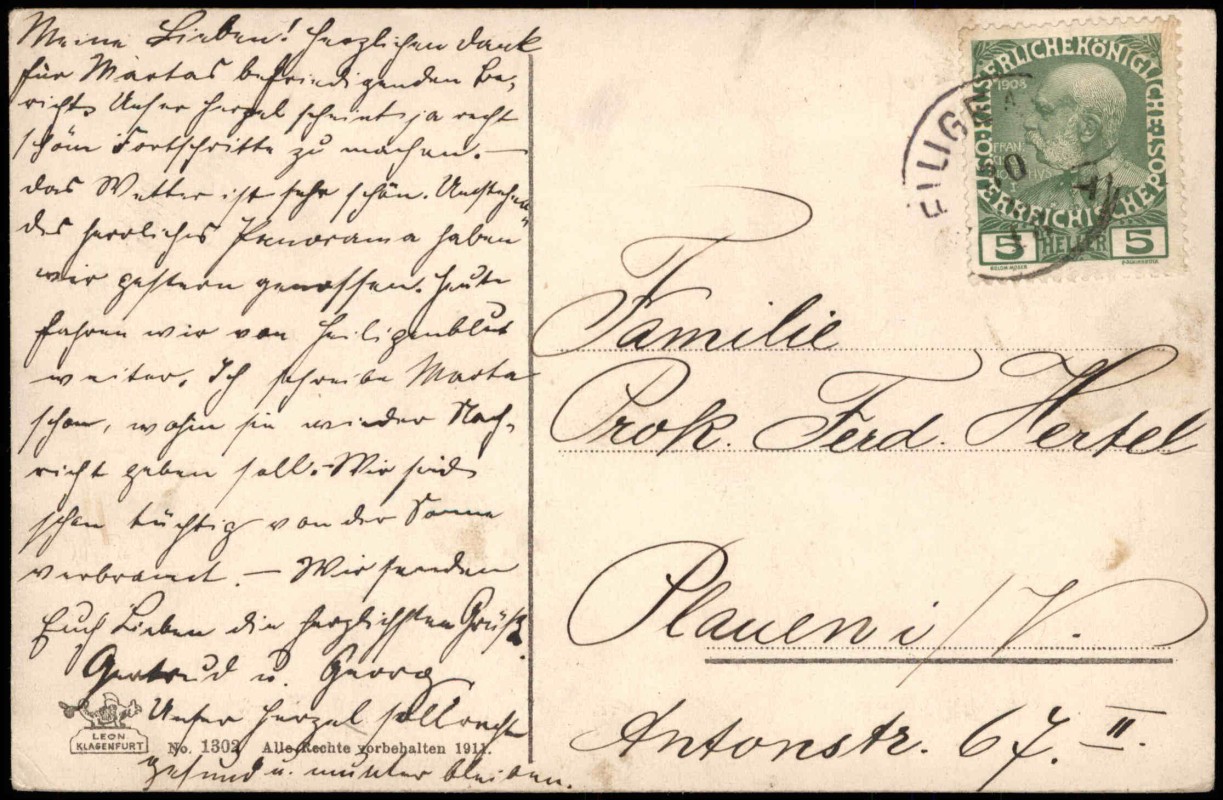 Meine Lieben! Herzlichen Dank
für Martas befriedigenden Be-
richt. Unser Herzel scheint ja recht
schöne Fortschritte zu machen. —
Das Wetter ist sehr schön. Umstehen-
des herrliches Panorama haben
wir gestern genossen. Heute
fahren wir von Heiligenblut
weiter. Ich schreibe Marta
schon, wohin sie wieder Nach-
richt geben soll. Wir sind
schon tüchtig von der Sonne
verbrannt. — Wir senden
Euch Lieben die herzlichsten Grüße
Gertrud u. Georg
Unser Herzel soll recht
gesund u. munter bleiben.
LEON
KLAGENFURT
No. 1302 Alle Rechte vorbehalten 1911.
KAISERLICHE KÖNIGLICHE ÖSTERREICHISCHE POST
1908
FRANZ
5 HELLER 5
Familie
Prok. Ferd. Hertel
Plauen i/V.
Antonstr. 67. II.